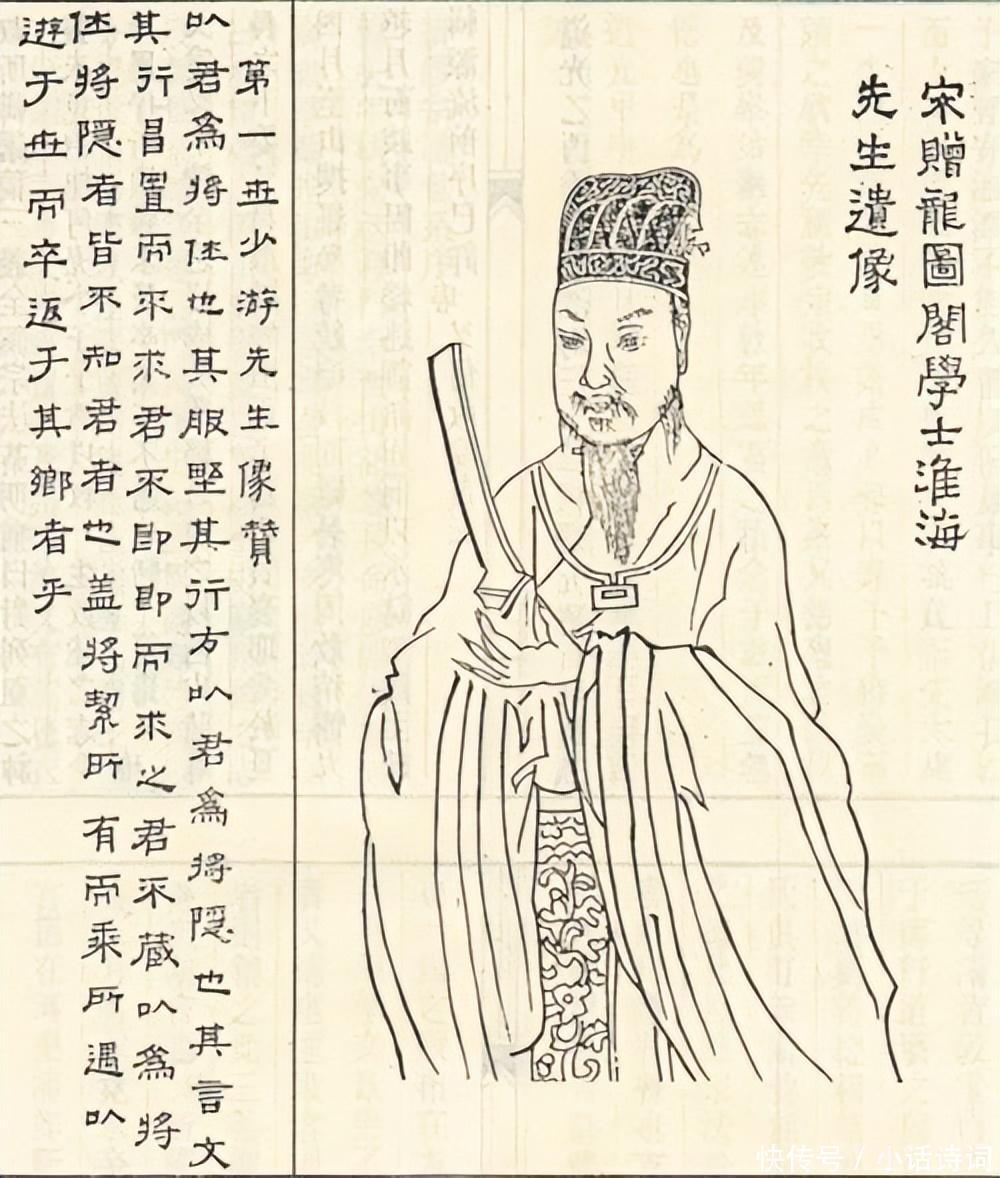 宋贈龍圖閣學士淮海
先生遺像
第一世少游先生像贊
以君為將仕也其服野其行方以君為將隱也其言文
其行昌置而不求君不即即而求之君不藏以為將
仕將隱者皆不知君者也蓋將絜所有而乘所遇以
遊于世而卒返于其鄉者乎
快传号 / 小话诗词